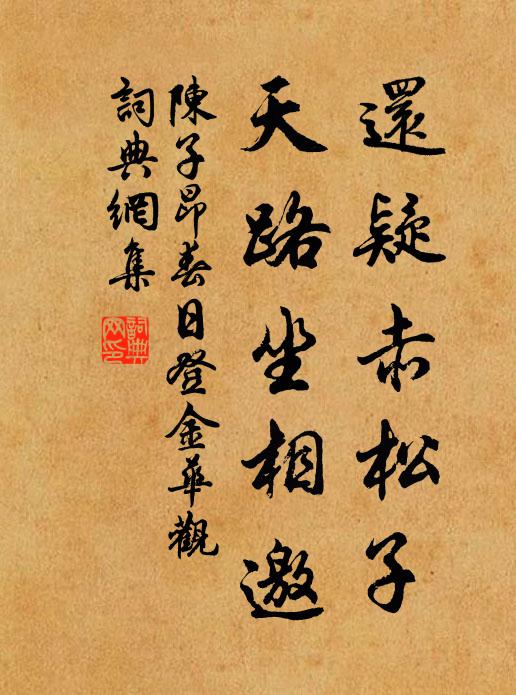 還疑赤松子
天路坐相邀
陳子昂春日登金華觀
詞典網集
詞典網印